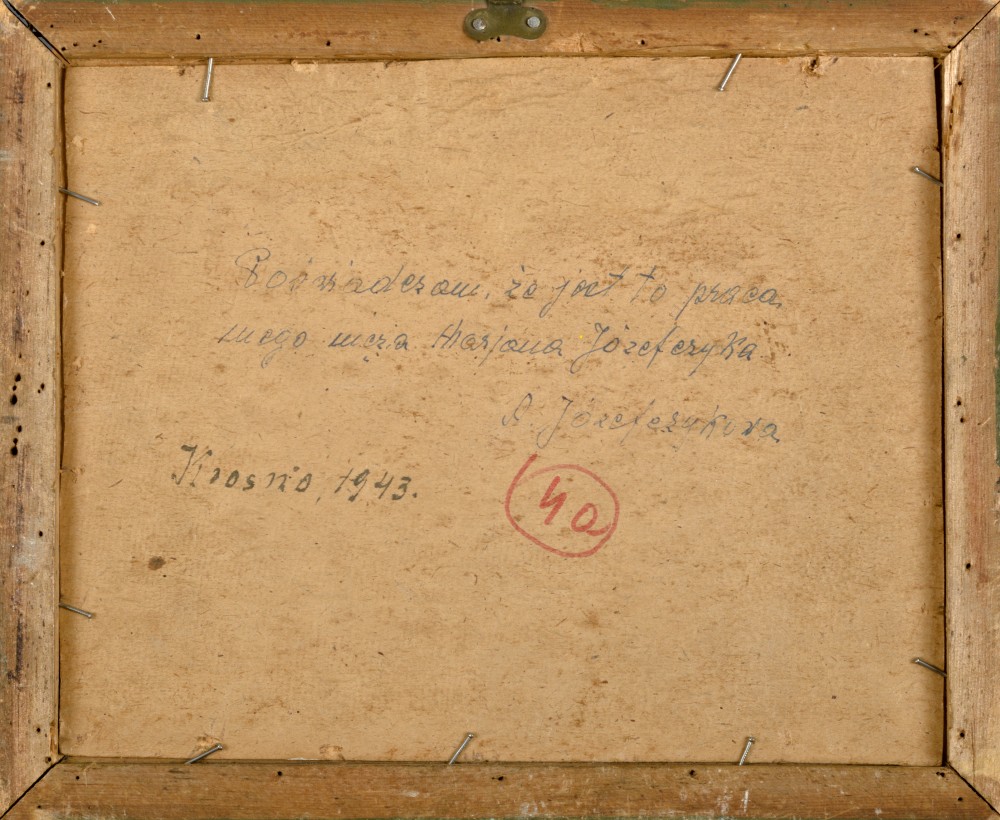 Poświadczam, że jest to praca
mego męża Marjana Józefczyka
S. Józefczykowa
Krosno, 1943.
40